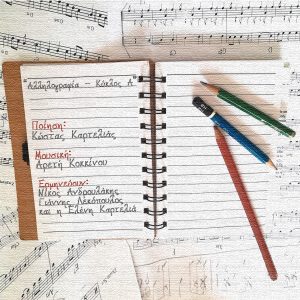 "Αλληλογραφία – Κύκλος Α"
Ποίηση:
Κώστας Καρτελιάς
Μουσική:
Αρετή Κοκκίνου
Ερμηνεύουν:
Νίκος Ανδρουλάκης
Γιάννης Λεκόπουλος
και η Ελένη Καρτελιά